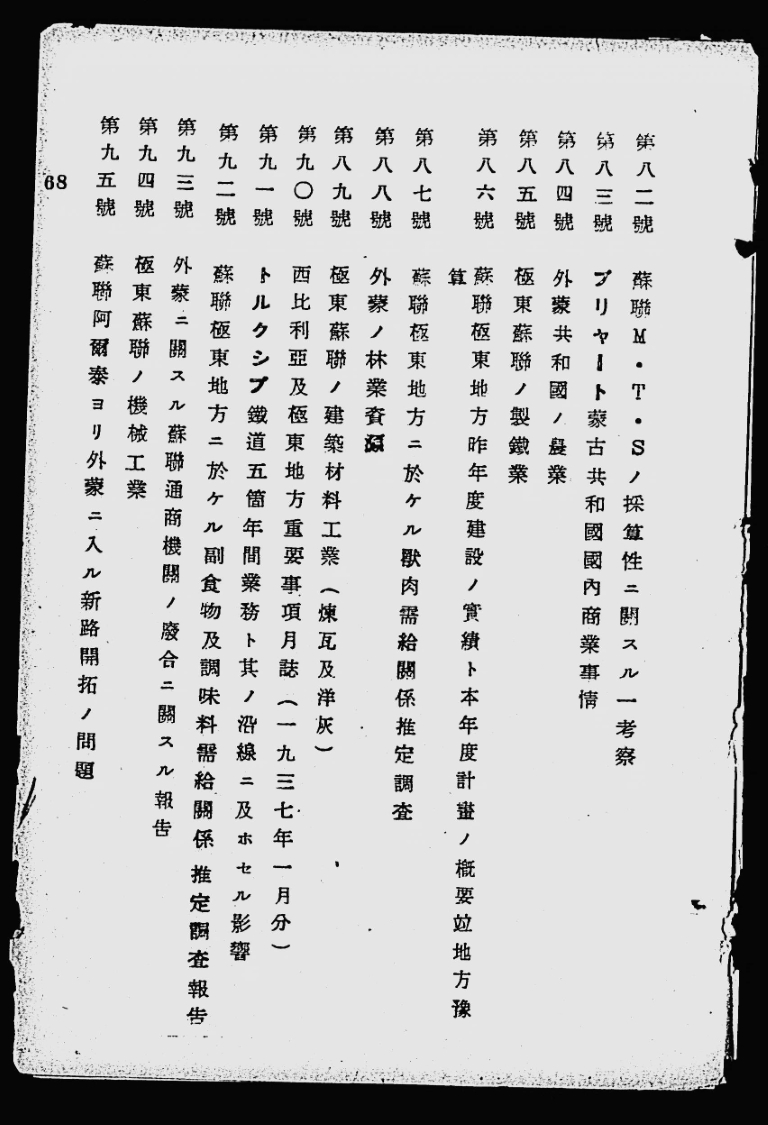 第八二號 蘇聯M・T・Sノ採算性ニ關スル一考察
第八三號 ブリヤート蒙古共和國國內商業事情
第八四號 外蒙共和國ノ農業
第八五號 極東蘇聯ノ製鐵業
第八六號 蘇聯極東地方昨年度建設ノ實績ト本年度計畫ノ概要竝地方豫
算
第八七號 蘇聯極東地方ニ於ケル獸肉需給關係推定調査
第八八號 外蒙ノ林業資源
第八九號 極東蘇聯ノ建築材料工業（煉瓦及洋灰）
第九〇號 西比利亞及極東地方重要事項月誌（一九三七年一月分）
第九一號 トルクシブ鐵道五箇年間業務ト其ノ沿線ニ及ホセル影響
第九二號 蘇聯極東地方ニ於ケル副食物及調味料需給關係推定調査報告
第九三號 外蒙ニ關スル蘇聯通商機關ノ廢合ニ關スル報告
第九四號 極東蘇聯ノ機械工業
第九五號 蘇聯阿爾泰ヨリ外蒙ニ入ル新路開拓ノ問題
68